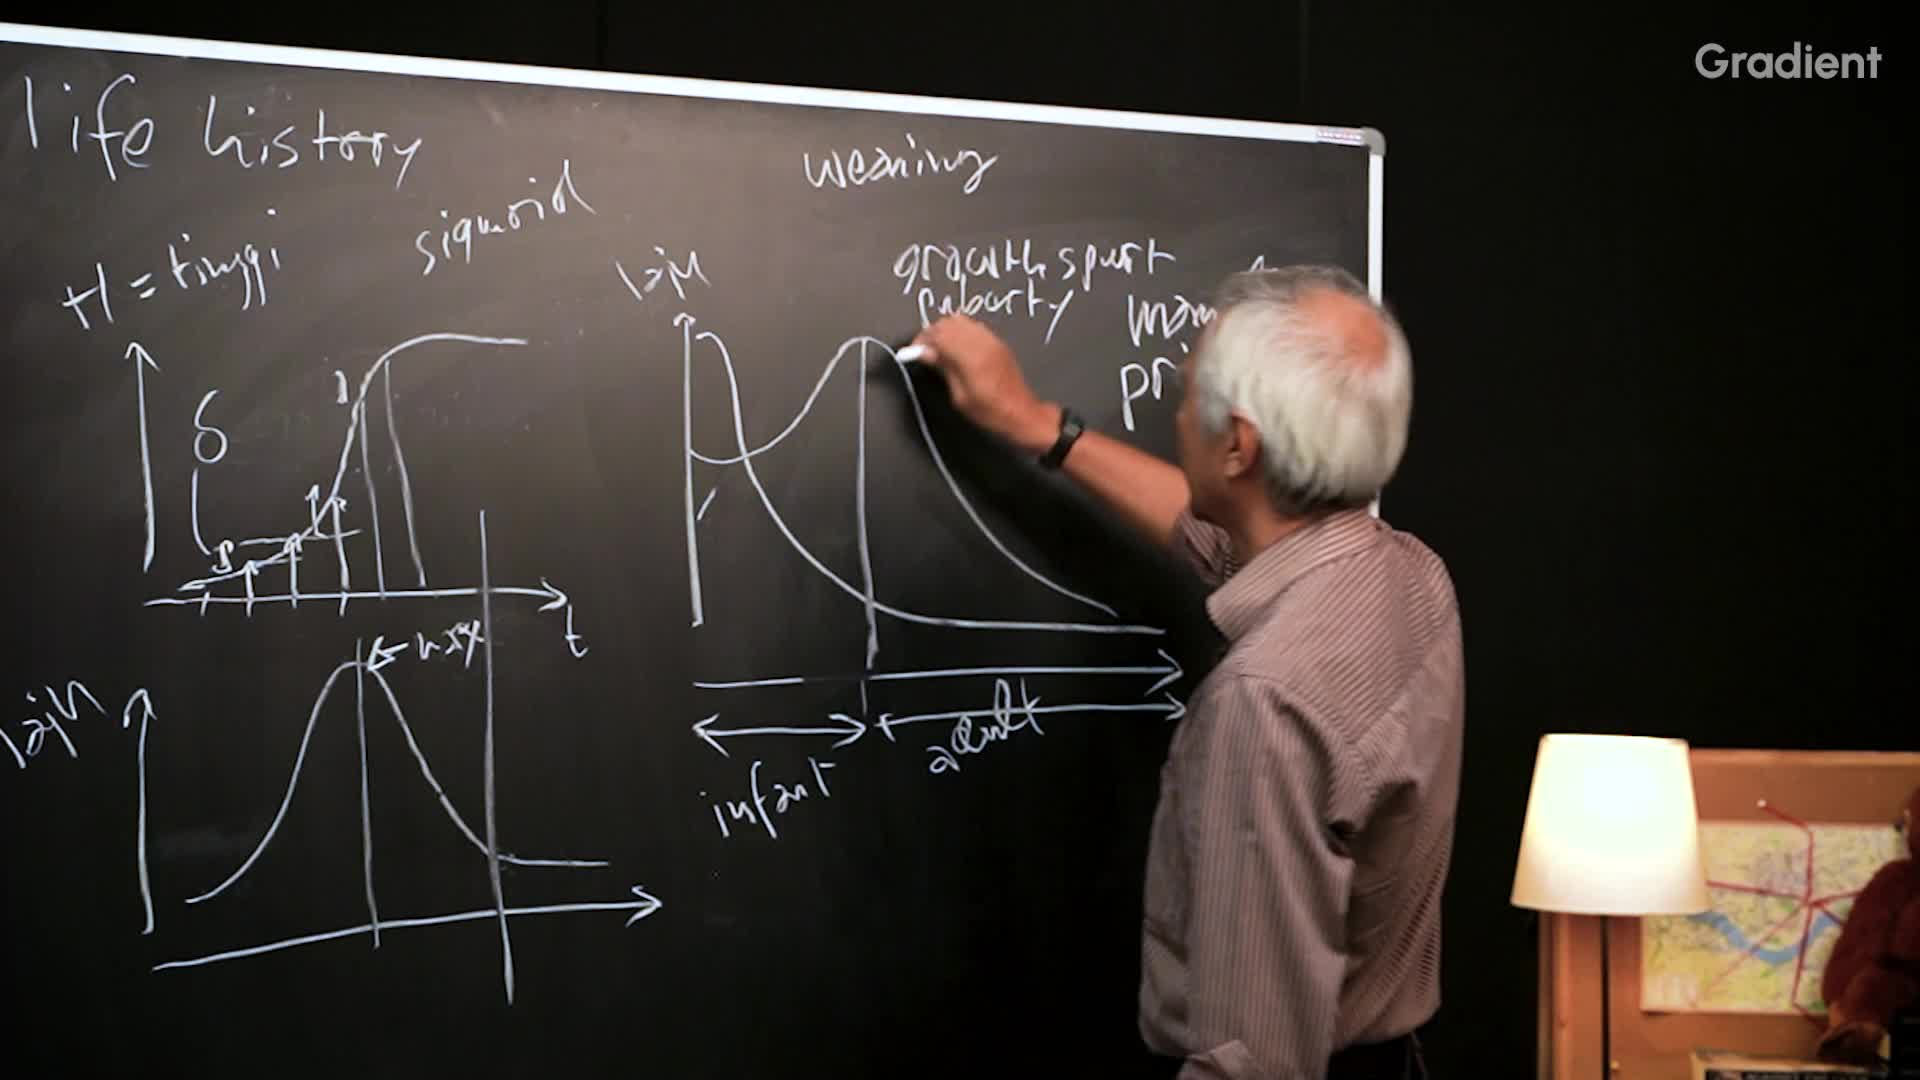 Gradient
life history
weaning
H = tinggi
sigmoid
laju
growth spurt
puberty
δ
t
max
laju
infant
adult